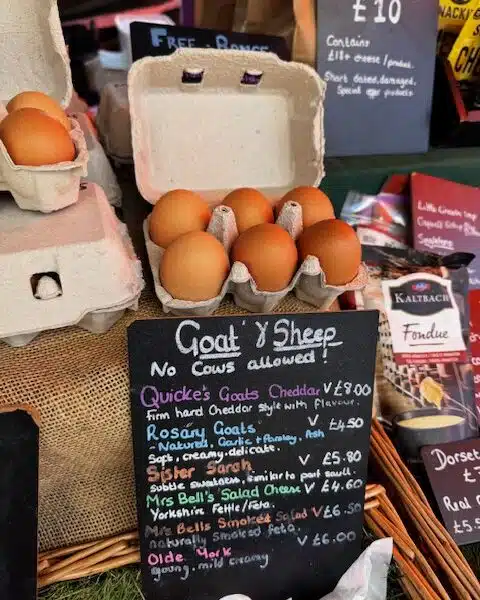 FREE RANGE
£10
Contains
£18+ cheese/product.
Short dated, damaged,
Special offer products
KALTBACH
Fondue
Goat & Sheep
No Cows allowed!
Quicke's Goats Cheddar V £8.00
Firm hard Cheddar style with flavour.
Rosary Goats V £4.50
- Natural, Garlic + Parsley, Ash
Soft, creamy, delicate.
Sister Sarah V £5.80
Subtle sweetness, similar to port salut.
Mrs Bell's Salad Cheese V £4.60
Yorkshire Fettle/Feta.
Mrs Bells Smoked Salad V £6.50
naturally smoked feta.
Olde York V £6.00
young, mild creamy
Dorset
Real
£5.5